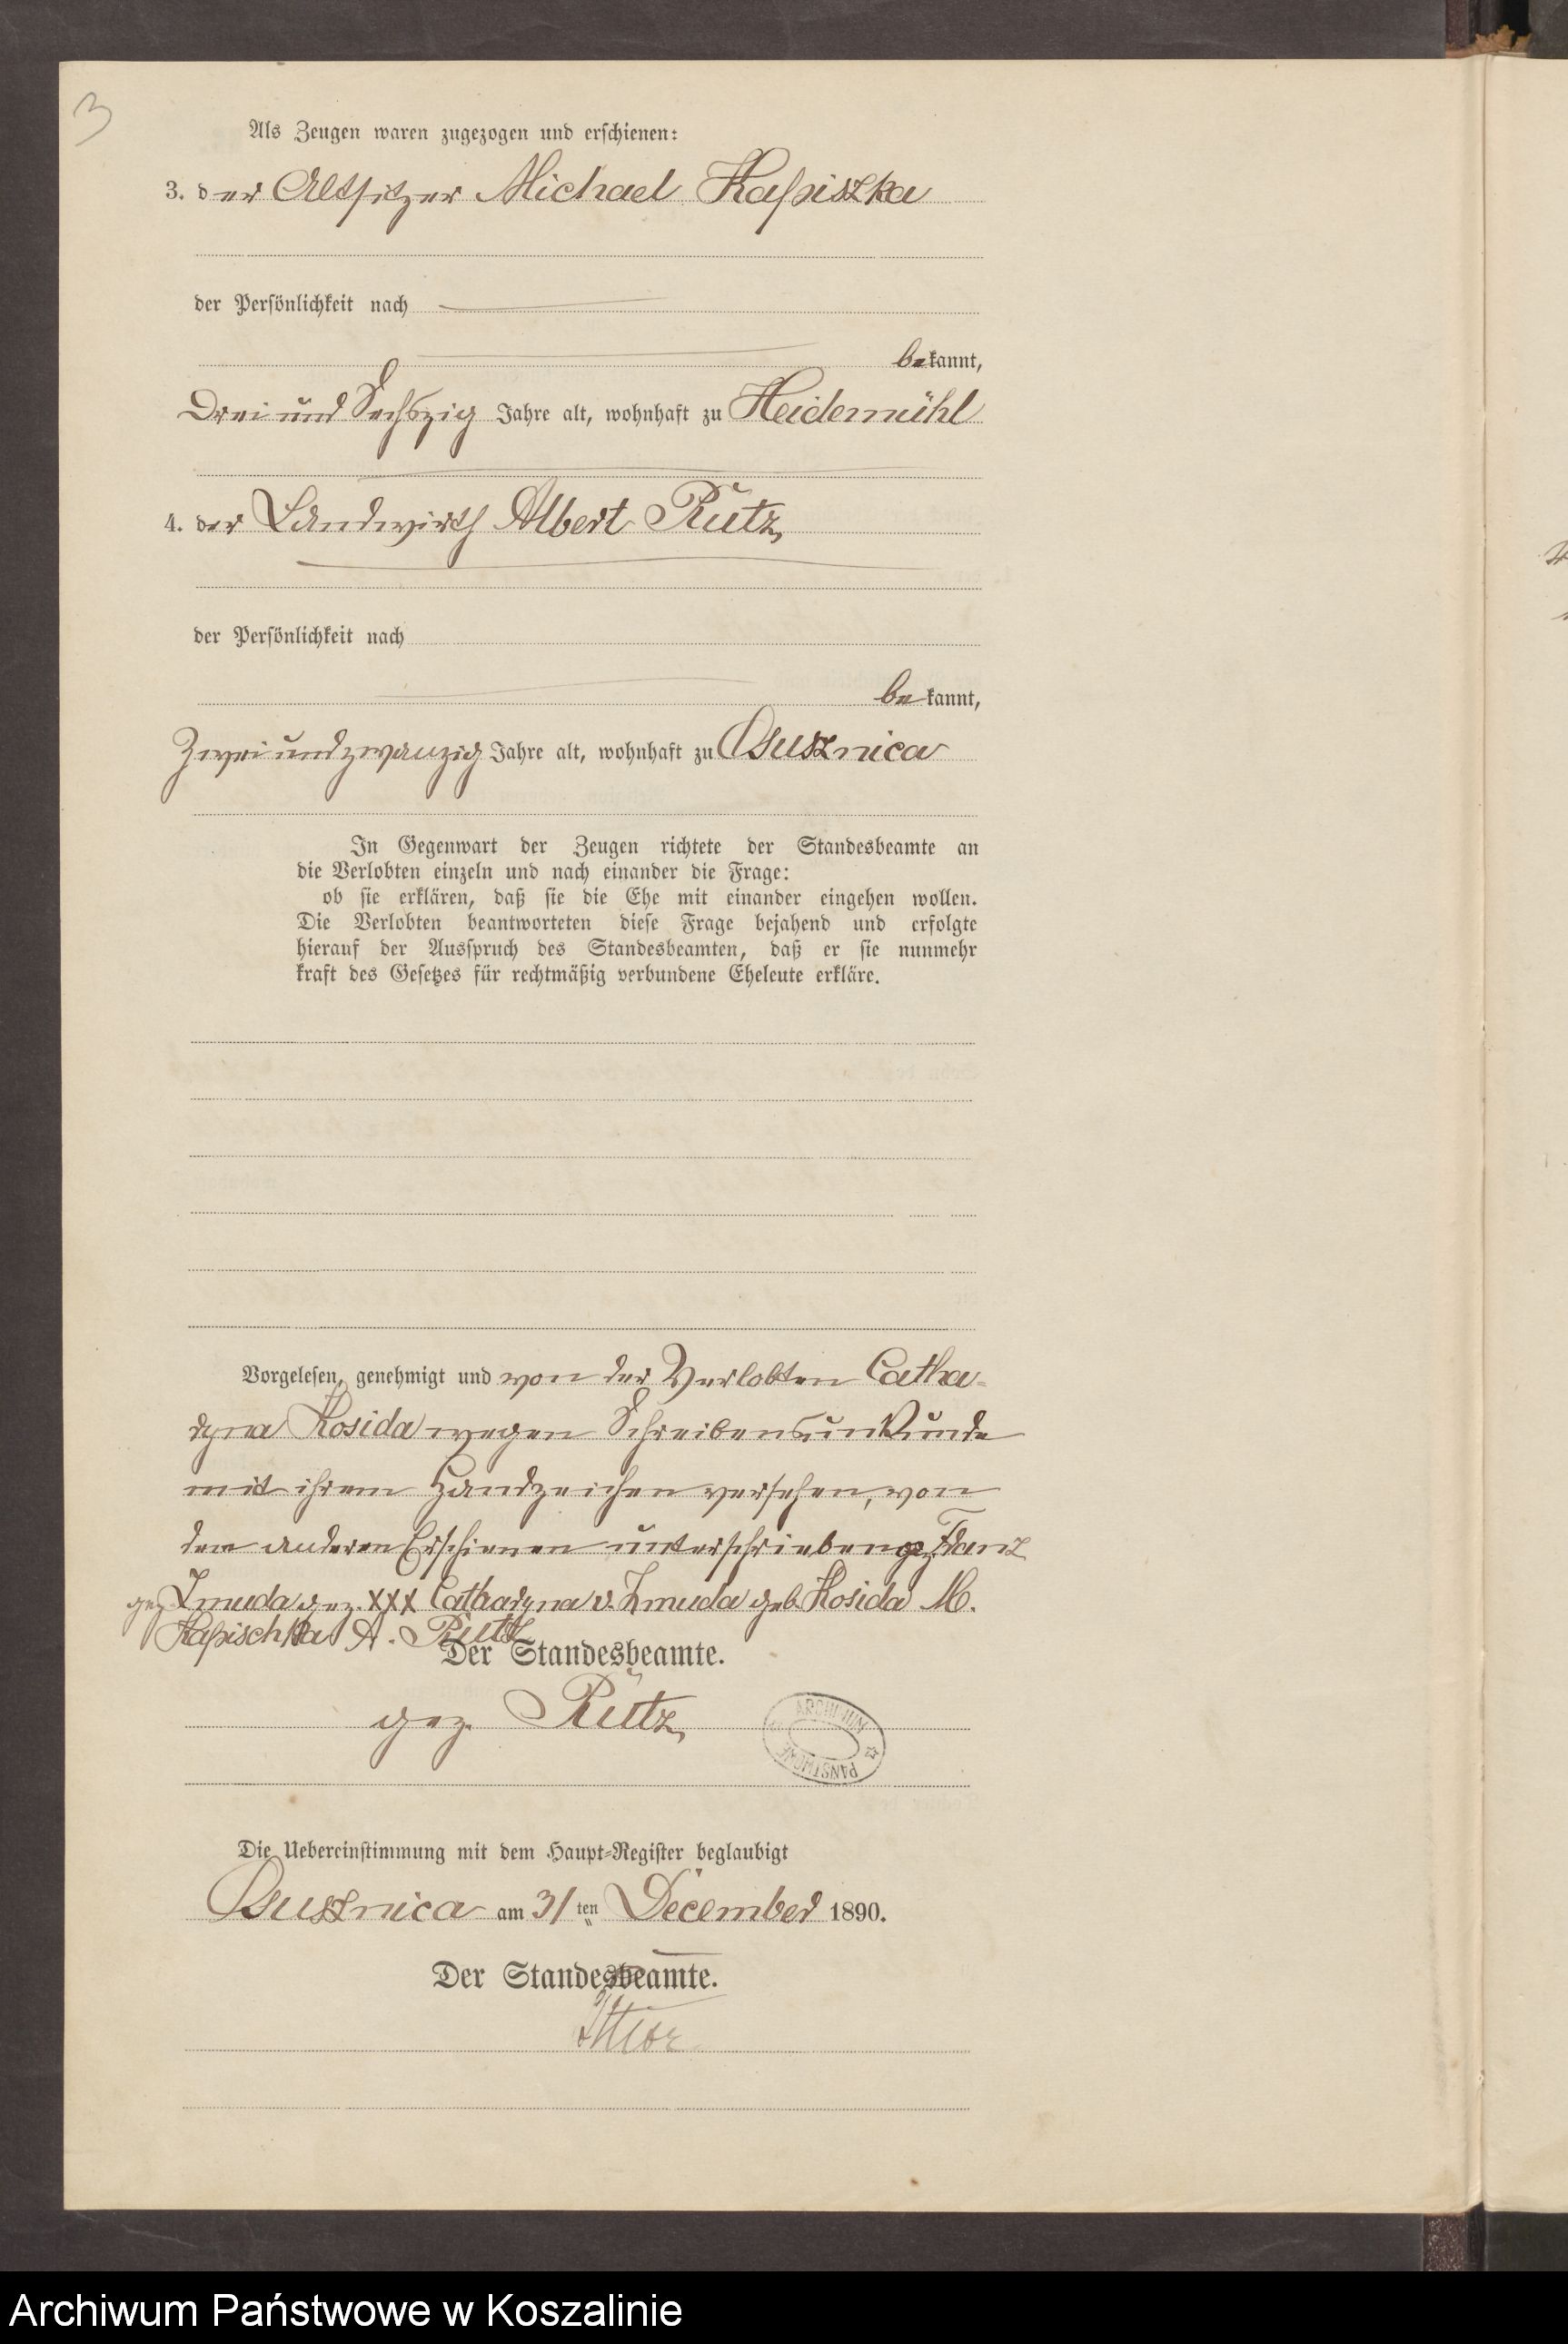 3
Als Zeugen waren zugezogen und erschienen:
3. der Altsitzer Michael Kaßiszka
der Persönlichkeit nach
bekannt,
Drei und Sechszig Jahre alt, wohnhaft zu Heidemühl
4. der Landwirth Albert Rütz,
der Persönlichkeit nach
bekannt,
Zwei und zwanzig Jahre alt, wohnhaft zu Osusznica
In Gegenwart der Zeugen richtete der Standesbeamte an
die Verlobten einzeln und nach einander die Frage:
ob sie erklären, daß sie die Ehe mit einander eingehen wollen.
Die Verlobten beantworteten diese Frage bejahend und erfolgte
hierauf der Ausspruch des Standesbeamten, daß er sie nunmehr
kraft des Gesetzes für rechtmäßig verbundene Eheleute erkläre.
Vorgelesen, genehmigt und von der Verlobten Catha-
ryna Kosida wegen Schreibensunkunde
mit ihrem Handzeichen versehen, von
den anderen Erschienen unterschrieben gez. Franz
gez. Zmuda gez. XXX Catharyna v. Zmuda geb. Kosida M.
Kaßischka A. Rutz
Der Standesbeamte.
gez. Rütz,
ARCHIWUM PAŃSTWOWE
Die Uebereinstimmung mit dem Haupt-Register beglaubigt
Osusznica am 31ten December 1890.
Der Standesbeamte.
Archiwum Państwowe w Koszalinie